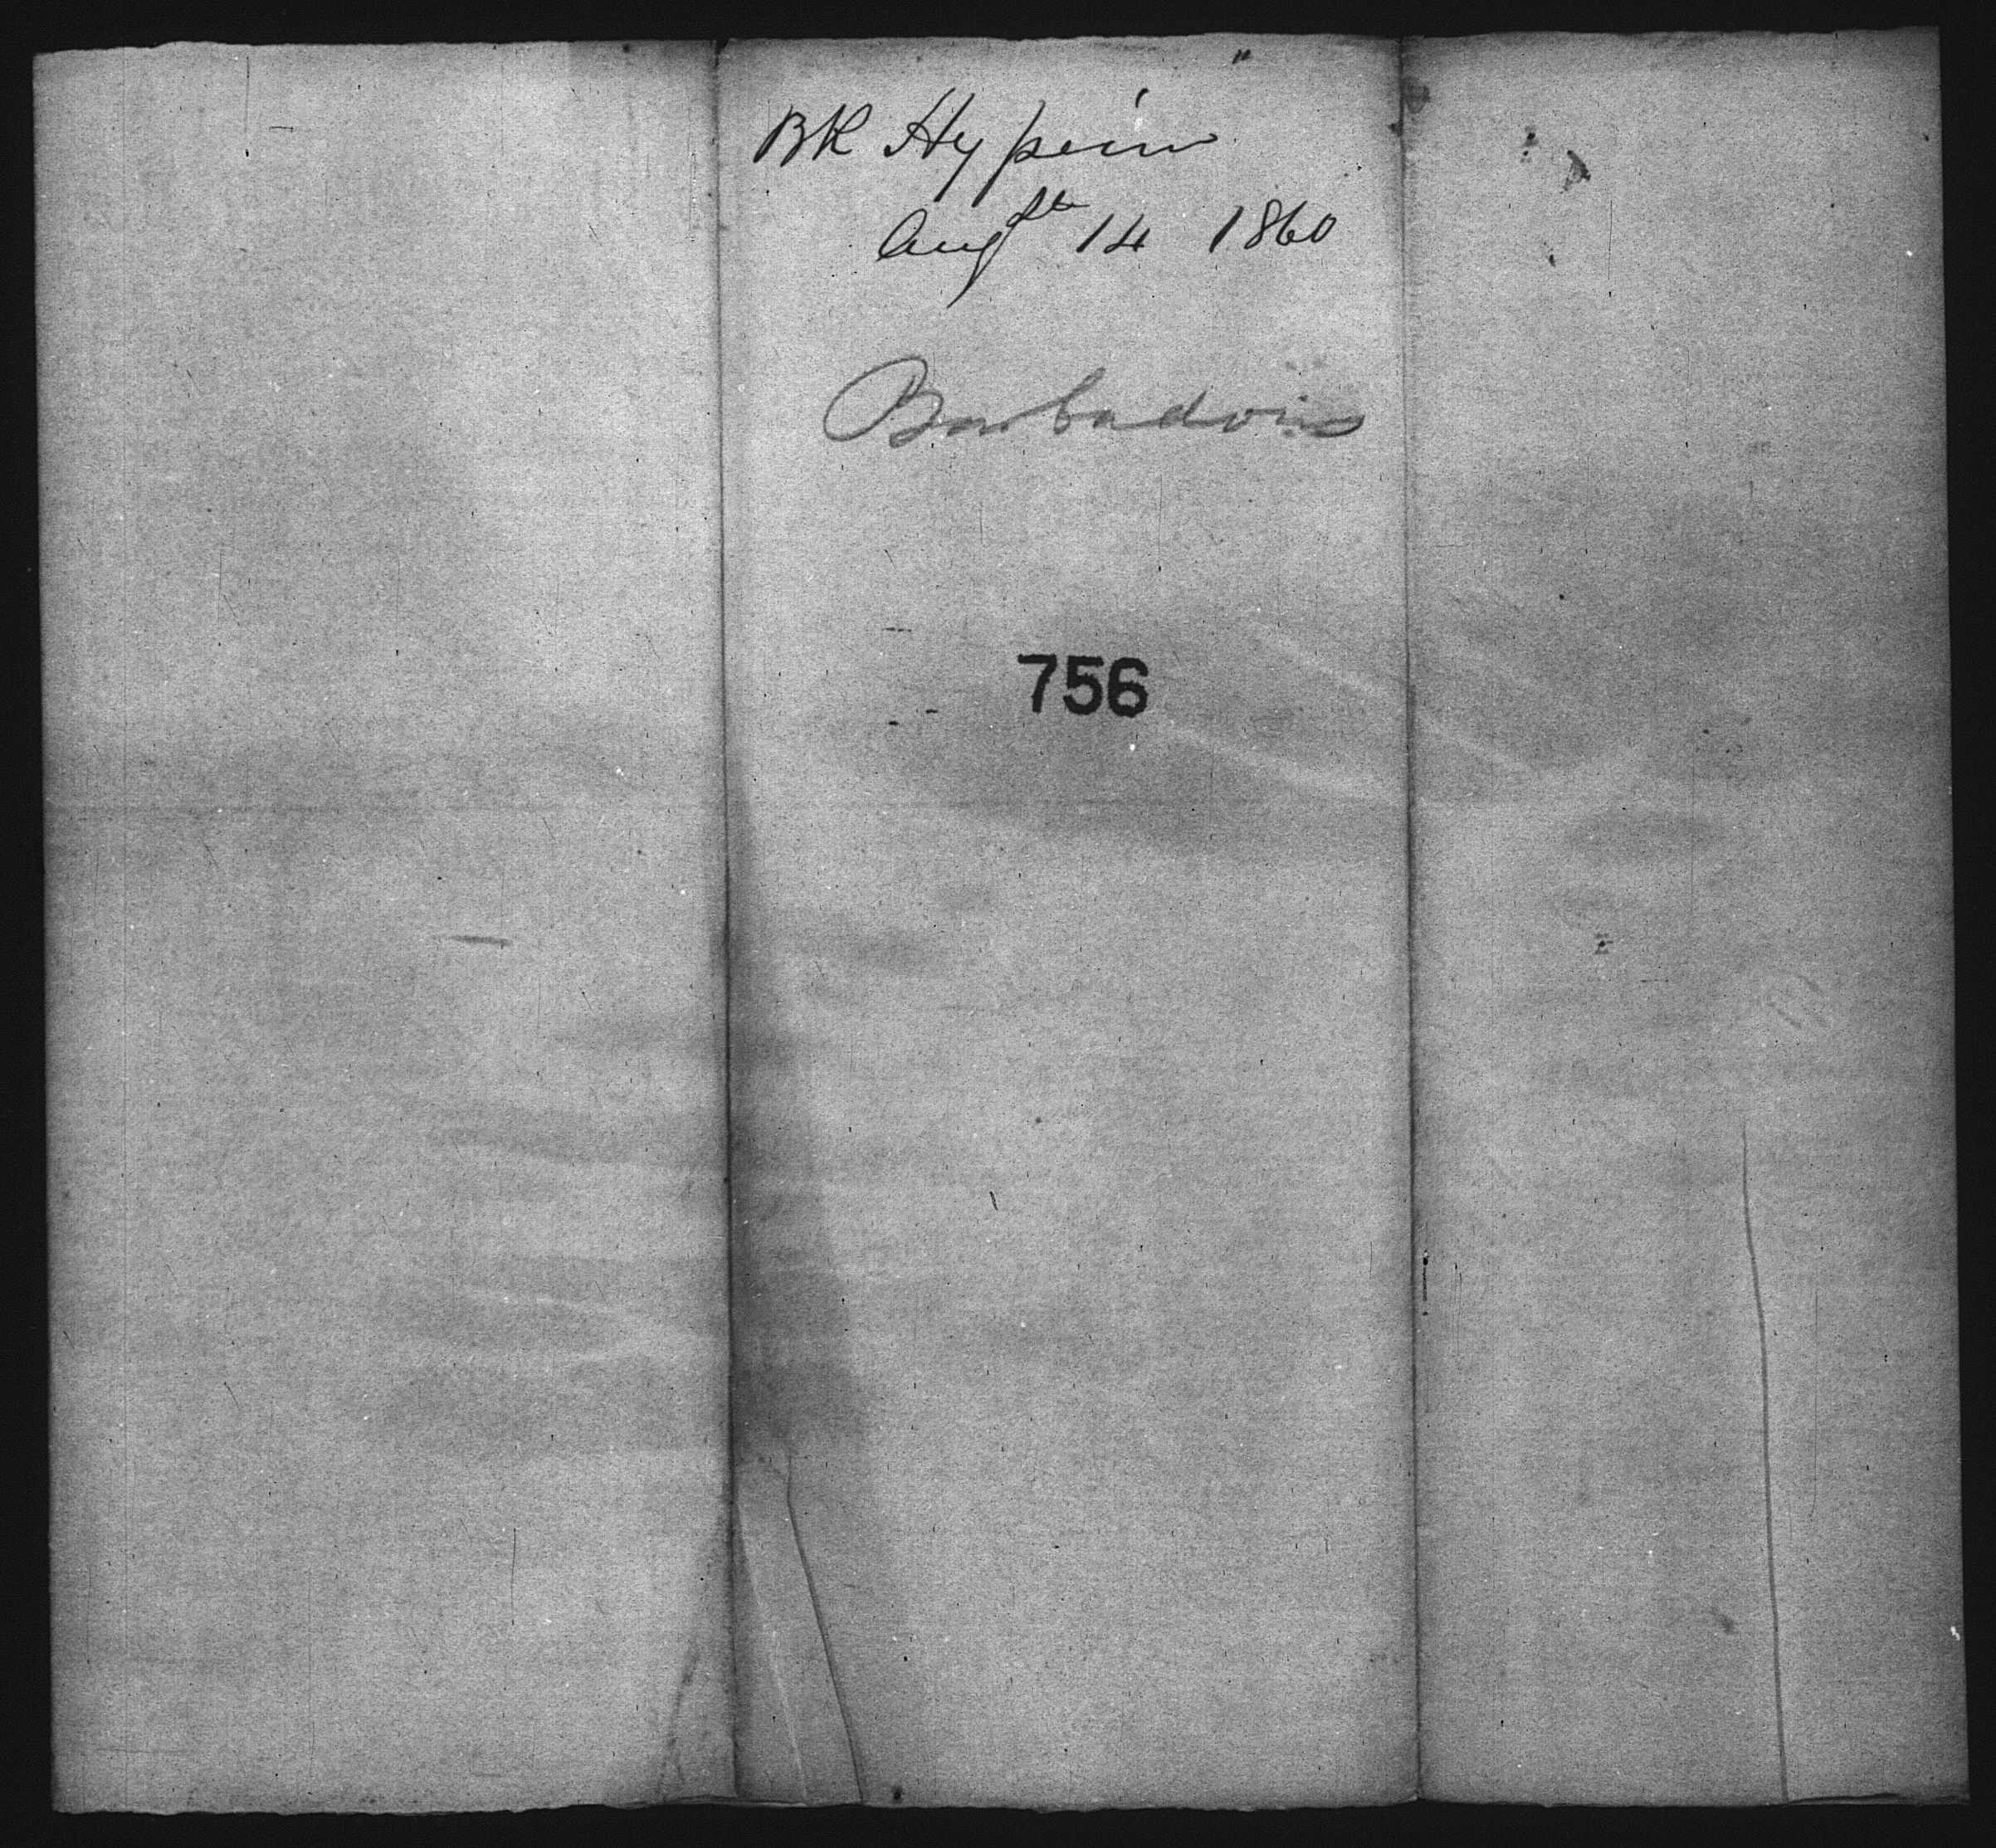 BK Hyperion
Augst 14 1860
Barbadoes
756